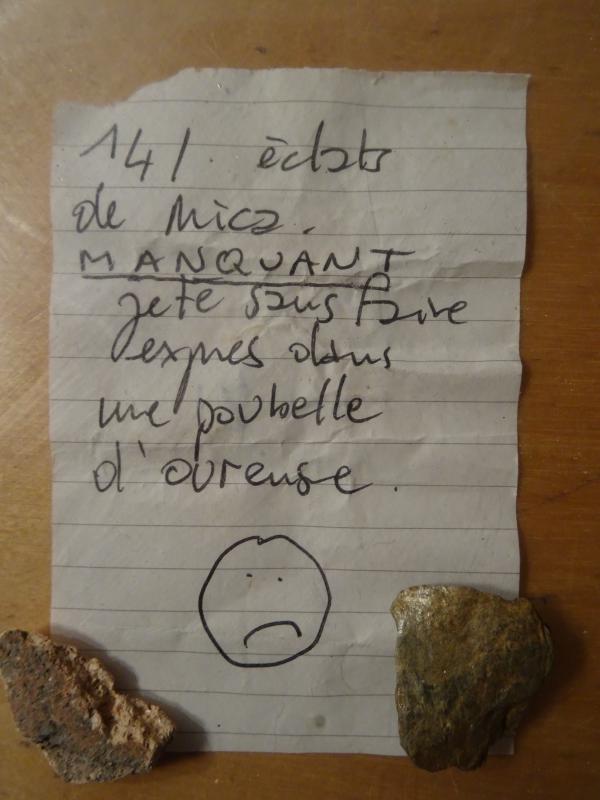 14/. éclats
de Mica.
MANQUANT
jeté sans faire
exprès dans
une poubelle
d'ourense.